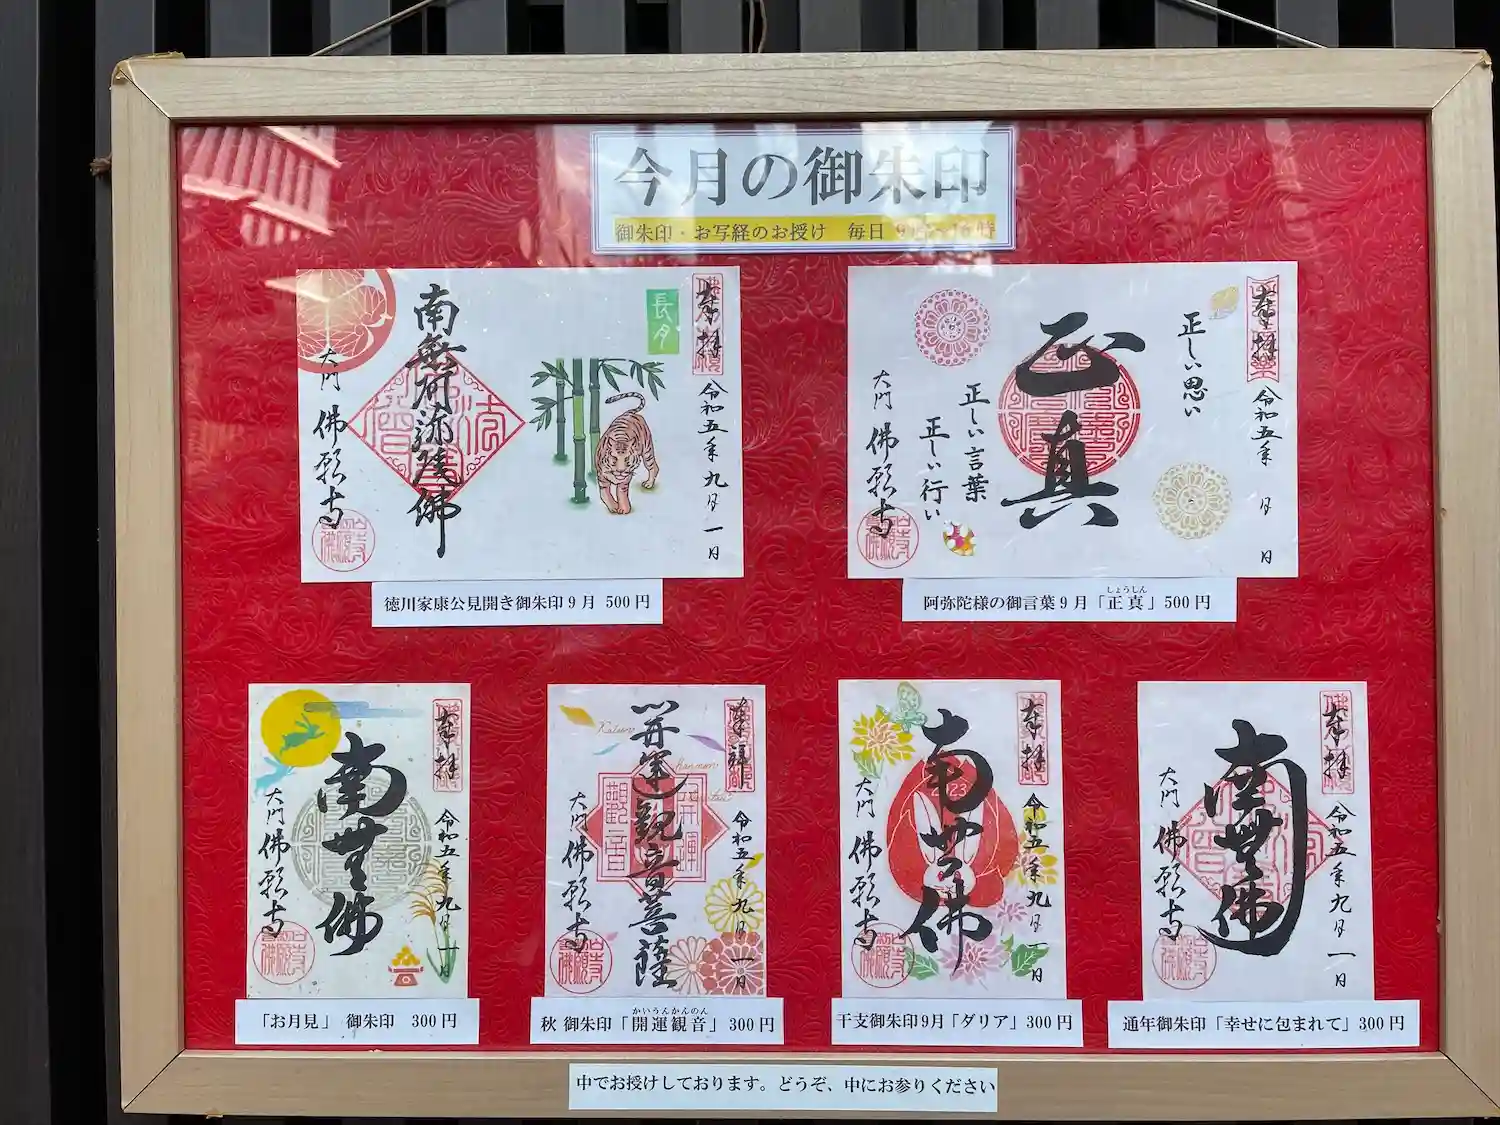 今月の御朱印
御朱印・お写経のお授け 毎日
奉拝
長月
令和五年九月一日
南無阿弥陀佛
大門 佛願寺
徳川家康公見開き御朱印9月 500円
奉拝
令和五年 月 日
正しい思い
正真
正しい言葉
正しい行い
大門 佛願寺
しょうしん
阿弥陀様の御言葉9月「正真」500円
奉拝
令和五年九月一日
南無佛
大門 佛願寺
「お月見」 御朱印 300円
奉拝
令和五年九月一日
開運観音菩薩
大門 佛願寺
かいうんかんのん
秋 御朱印「開運観音」300円
奉拝
令和五年九月一日
南無佛
2023
大門 佛願寺
干支御朱印9月「ダリア」300円
奉拝
令和五年九月一日
南無佛
大門 佛願寺
通年御朱印「幸せに包まれて」300円
中でお授けしております。どうぞ、中にお参りください